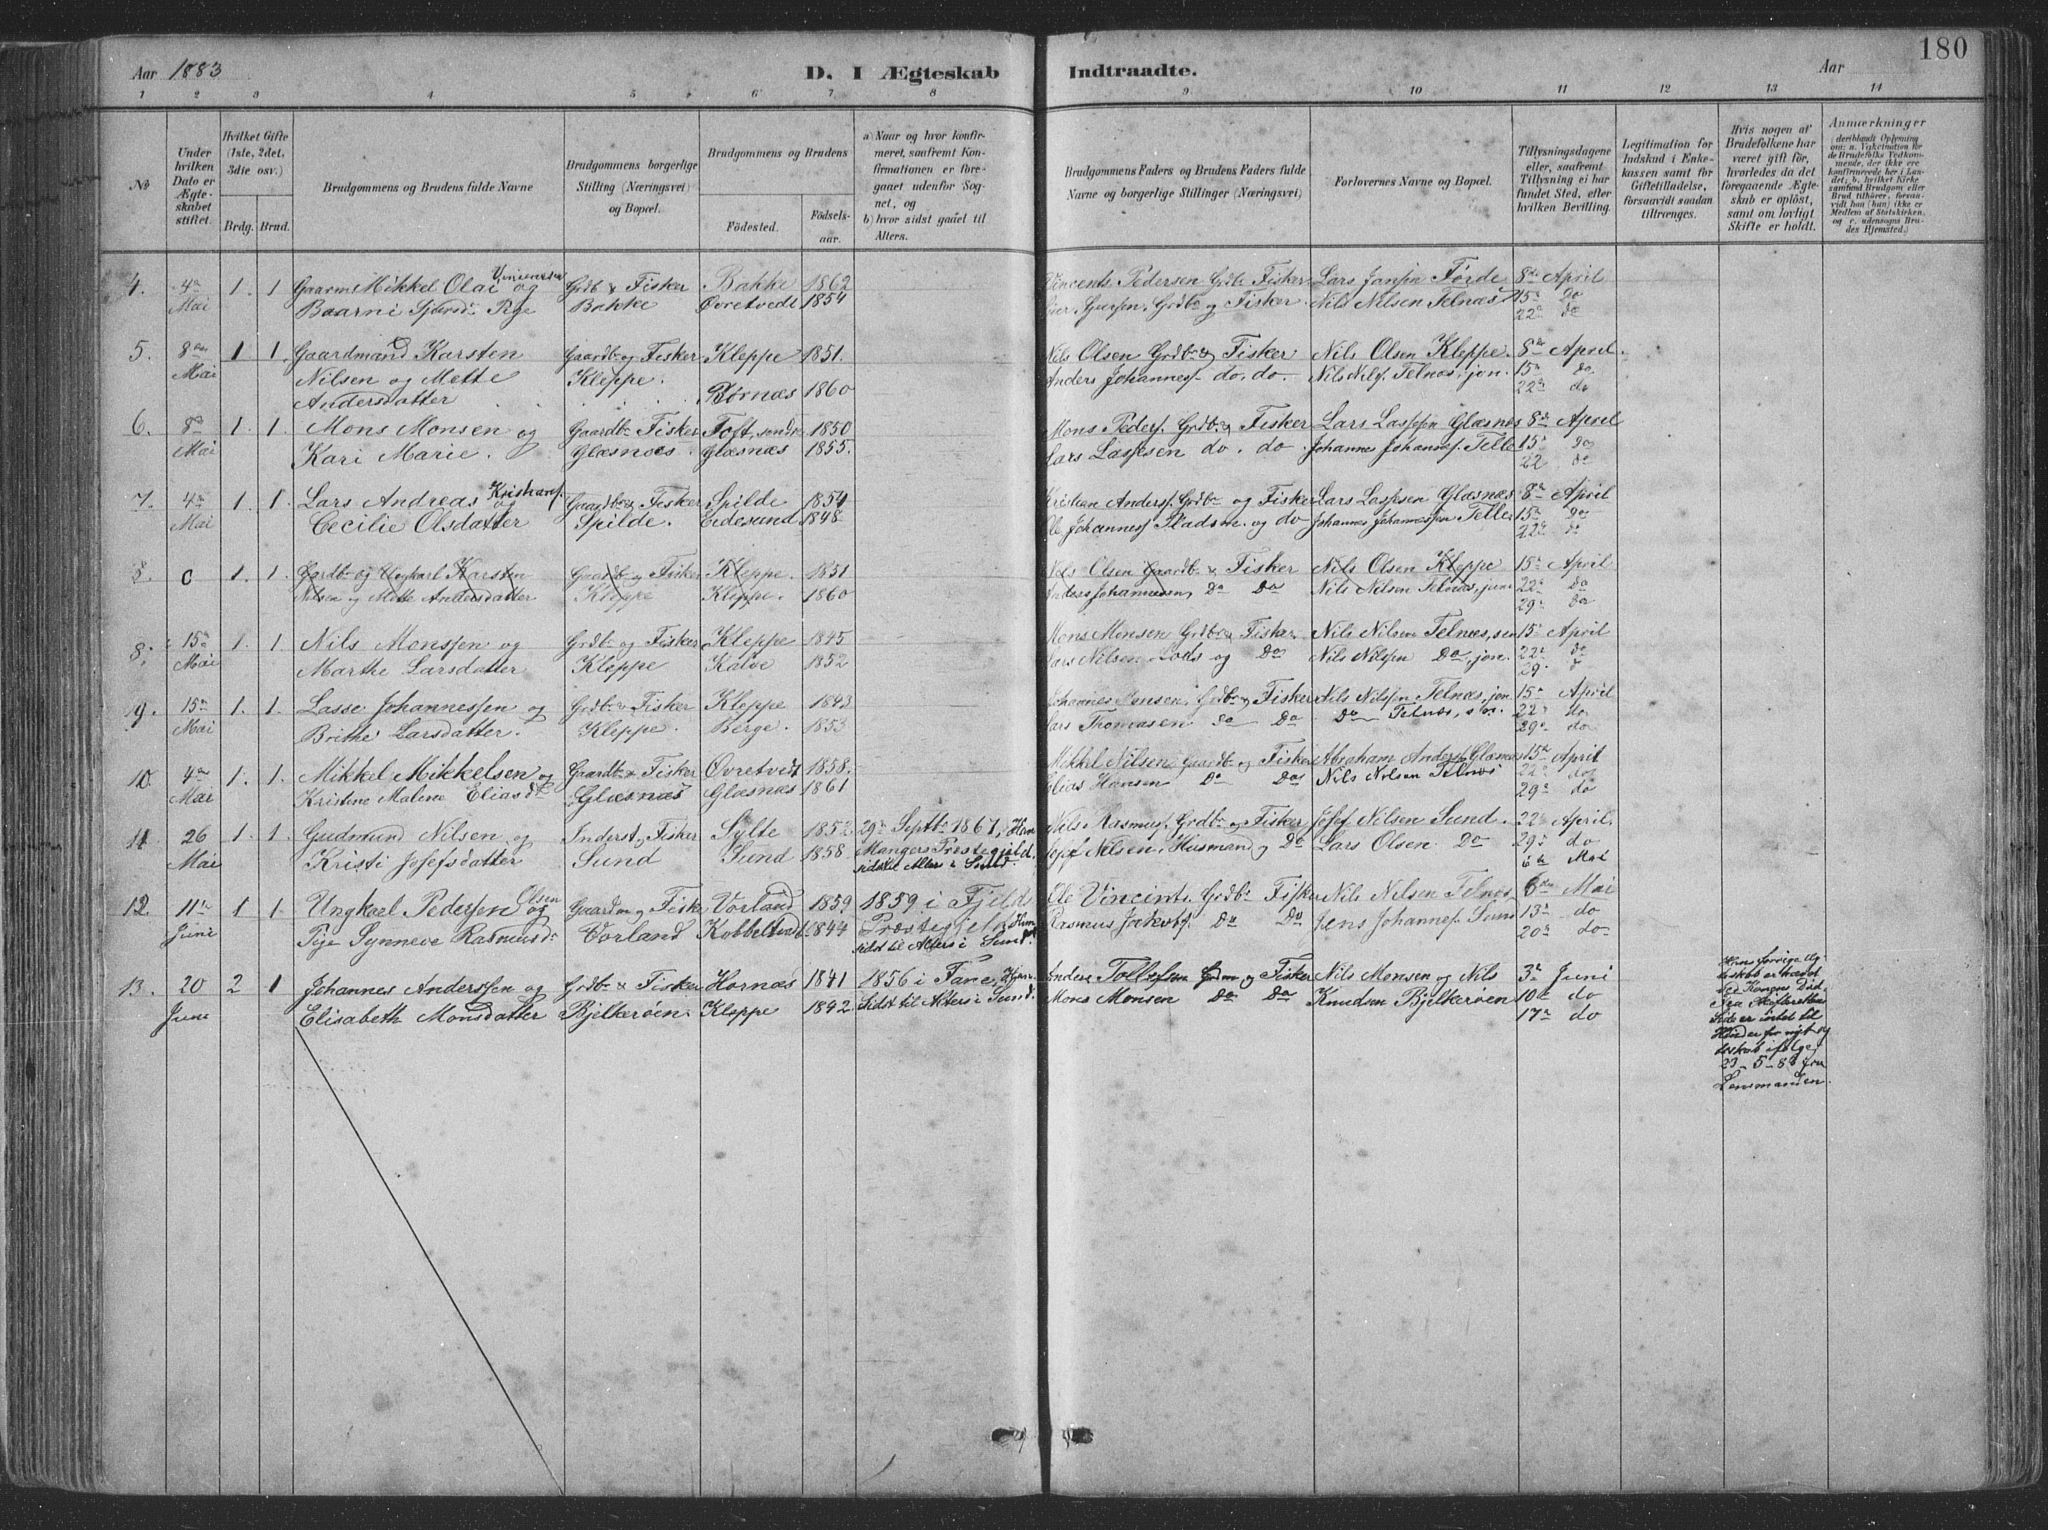 Aar 1883
D. I Ægteskab
Indtraadte.
Aar
180
1 2 3 4 5 6 7 8 9 10 11 12 13 14
No
Under hvilken Dato er Ægteskabet stiftet.
Hvilket Gifte (1ste, 2det, 3die osv.)
Brdg. Brud.
Brudgommens og Brudens fulde Navne
Brudgommens borgerlige Stilling (Næringsvei) og Bopæl.
Brudgommens og Brudens
Fødested.
Fødselsaar.
a) Naar og hvor konfirmeret, saafremt Konfirmationen er foregaaet udenfor Sognet, og
b) hvor sidst gaaet til Alters.
Brudgommens Faders og Brudens Faders fulde Navne og borgerlige Stillinger (Næringsvei)
Forlovernes Navne og Bopæl.
Tillysningsdagene eller, saafremt Tillysning ei har fundet Sted, efter hvilken Bevilling.
Legitimation for Indskud i Enkekassen samt for Giftetilladelse, forsaavidt saadan tiltrænges.
Hvis nogen af Brudefolkene har været gift før, hvorledes da det foregaaende Ægteskab er opløst, samt om lovligt Skifte er holdt.
Anmærkninger
4. 4de 1. 1 Mikkel Olai og Grdb & Fisker Bakke 1862 Vincents Pedersen Grdb. Fisker Lars Jansen Førde 8de April
Mai Baarni Pige Bakke Øvretvedt 1854 Grdb og Fisker Nils Nilsen Telnæs 15de Do
22de do
5. 8de 1 1. Gaardmand Karsten Gaardb og Fisker Kleppe 1851. Nils Olsen Grdb & Fisker Nils Olsen Kleppe 8de April
Mai Nilsen og Mette Kleppe. Anders Johannesf. do. do. Nils Nilsf. Telnæs, jon. 15de do
Andersdatter Børnæs 1860 22de do
6. 8de 1. 1. Mons Monsen og Gaardb Fisker Toft, søndre 1850 Mons Peders. Grdb. & Fisker Lars Lassesen Glæsnæs 8de April
Mai Kari Marie. Glæsnæs. Glæsnæs 1855. Lars Lassesen do. do Johannes Johannesf. Telle 15de Do
22 do
7. 4de 1. 1. Lars Andreas Kristians. og Gaardb & Fisker Spilde 1854 Kristian Andersf. Grdb og Fisker Lars Lassesen Glæsnæs 8de April
Mai Cecilie Olsdatter Spilde. Eidesund 1848 Ole Johannesf Pladsm. og do Johannes Johannessen Telle 15de Do
22de do
8. C 1. 1. Gardb og Ungkarl Karsten Gaardb og Fisker Kleppe. 1851 Nils Olsen Gaardb & Fisker Nils Olsen Kleppe 15de April
Nilsen og Mette Andersdatter Kleppe Kleppe. 1860 Anders Johannesen, Do Do Nils Nilsen Telnæs, jun 22de Do
29de do
8. 15de 1. 1 Nils Monssen og Grdb og Fisker Kleppe 1845 Mons Monsen Grdb & Fisker Nils Nilsen Telnæs, sen 15de April
Mai Marthe Larsdatter Kleppe Kalve 1852 Lars Nilsen Lods og Do Nils Nilssen Do, jon. 22de do
29. d
9. 15de 1. 1. Lasse Johannessen og Grdb & Fisker Kleppe 1843 Johannes Grdb & Fisker Nils Nilssen Telnæs, jon 15de April
Mai Brithe Larsdatter. Kleppe. Berge. 1853 Lars Thomasen do Do Do Telnæs, 22de do
29de do
10. 4de 1. 1. Mikkel Mikkelsen og Gaardb & Fisker Øvretvedt 1858. Mikkel Nilsen Gaardb og Fisker Abraham Anders. Glæsnæs 15de April
Mai Kristene Malene Eliasdt Glæsnæs Glæsnæs 1861 Elias Hansen Do Do Nils Nilsen Telnæs 22de do
29de do
11 26 1. 1. Gudmund Nilsen og Inderst og Fisker Sylte 1852. 29de Septbr 1867, Nils Rasmusf. Grdb og Fisker Josef Nilsen Sund. 22de April.
Mai Kristi Josefsdatter Sund Sund 1858. Mangers Præstegjeld. Josef Nilsen. Husmand og Do Lars Olsen Do 29de do
sidst til Alters i Sund. 6te Mai
12. 11te 1 1. Ungkarl Pedersen Olsen og Gaardm og Fisker Vorland 1859 1859 i Fjeld Ole Vincents. Grdb Fisker Nils Nilsen Telnæs 6de Mai
Juni Pige Synneve Rasmusd. Vorland Kobbeltvedt 1844 Præstegjeld, Rasmus Jakobsf. Do Do Jens Johannesf. Sund 13de do
sidst til Alters i Sund. 20de do
13. 20 2 1 Johannes Anderssen og Grdb & Fisker Hornæs 1841 1856 i Fane, Anders Tollefsen og Fisker Nils Monsen og Nils 3de Juni
Juni Elisabeth Monsdatter Bjelkerøen. Kleppe 1842 Sidst til Alters i Sund. Mons Monsen Do Do Knudsen Bjelkerøen 10de do
17de do
Hans forrige Æg
teskab er hævet
ved Konens Død
Fra Skifterettens
Side er intet til
Hinder for nyt Æg
teskab ifølge
23-5-83 fra
Lensmanden.